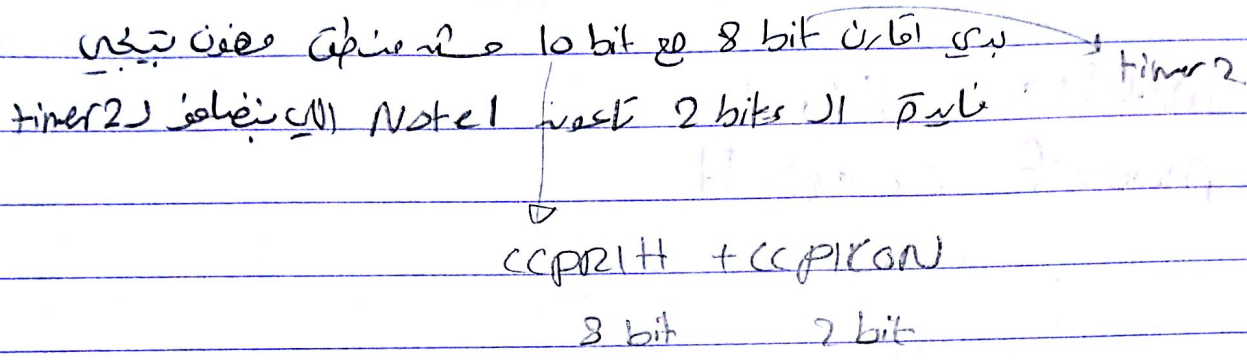 بدي اقارن 8 bit مع 10 bit مش منطق فهون بتيجي
timer 2
فايدة ال 2 bits تاعون Note1 اللي بنضاف ل timer2
CCPR1H + CCP1CON
8 bit 2 bit